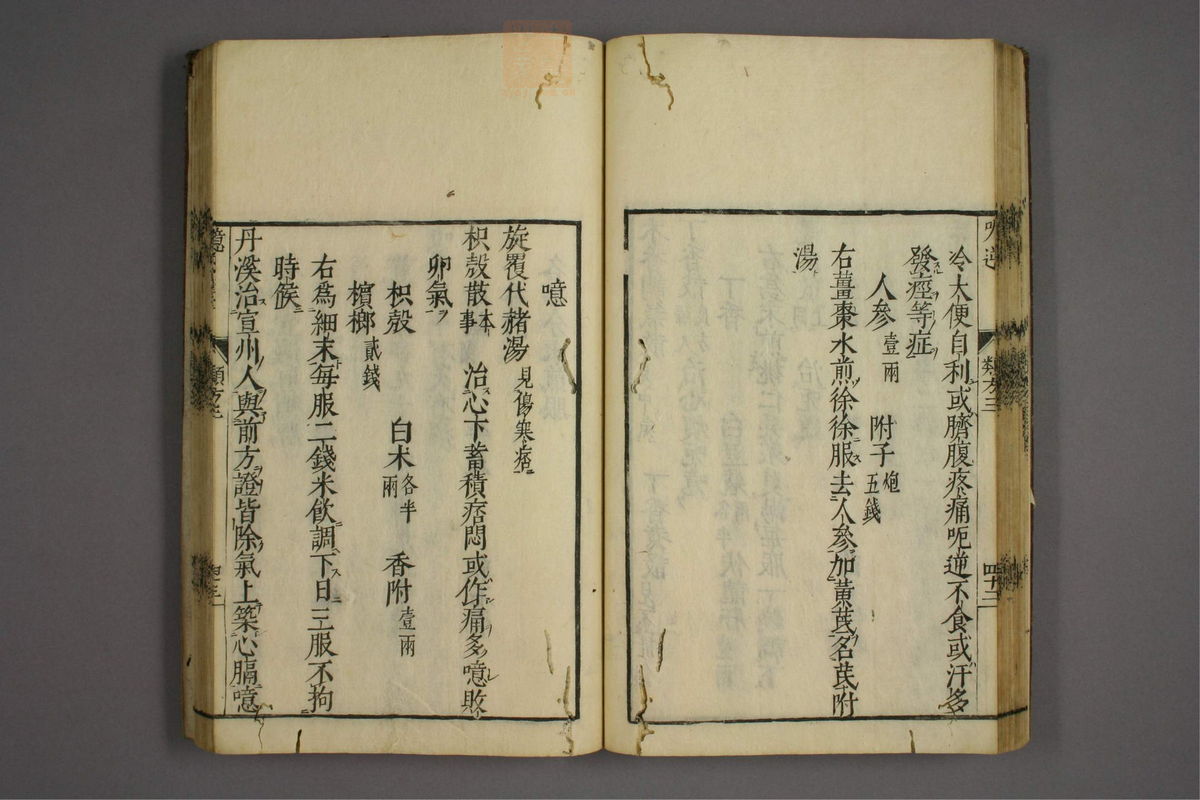 冷大便自利或臍腹疼痛呃逆不食或汗多
發痙等症
人參壹兩 附子炮五錢
右薑棗水煎徐徐服去人參加黃芪名芪附
湯
類方三
四十二
噫
旋覆代赭湯見傷寒痞
枳殼散本事 治心下蓄積痞悶或作痛多噫敗
卵氣
枳殼 白朮各半兩 香附壹兩
檳榔貳錢
右為細末每服二錢米飲調下日三服不拘
時候
丹溪治宣州人與前方證皆除氣上築心膈噫